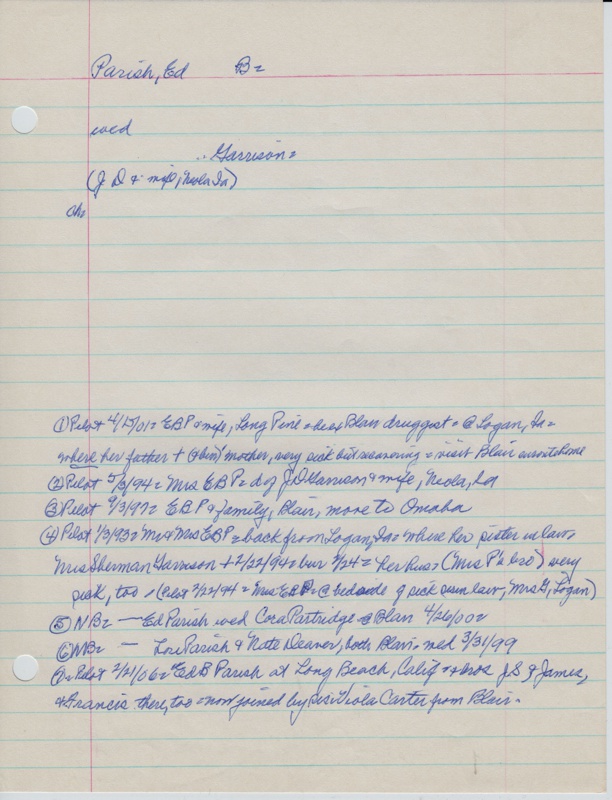 Parish, Ed B=
wed
.. Garrison=
(J D & wife, Neola Ia)
ch=
① Pilot 4/25/01= EBP & wife, Long Pine = Blair druggist = @ Logan, Ia=
where her father + (& bur) mother, very sick but recovering = visit Blair enroute home
② Pilot 5/3/94= Mrs EBP= d of J D Garrison & wife, Neola, Ia
③ Pilot 9/3/97= EBP & family, Blair, move to Omaha
④ Pilot 1/3/93= Mr & Mrs EBP= back from Logan, Ia= where her sister in law,
Mrs Sherman Garrison + 2/22/94= bur 2/24= her hus= (Mrs P's bro) very
sick, too = (Pilot 2/22/94= Mrs EBP= @ bedside of sick sis in law, Mrs G, Logan)
⑤ NB= — Ed Parish wed Cora Partridge @ Blair 4/26/00=
⑥ NB= — Lou Parish & Nate Deaver, both Blair, wed 3/31/99
7= Pilot 2/21/06= Ed B Parish at Long Beach, Calif = & bros J S & James,
& Francis there, too = now joined by sis Viola Carter from Blair=